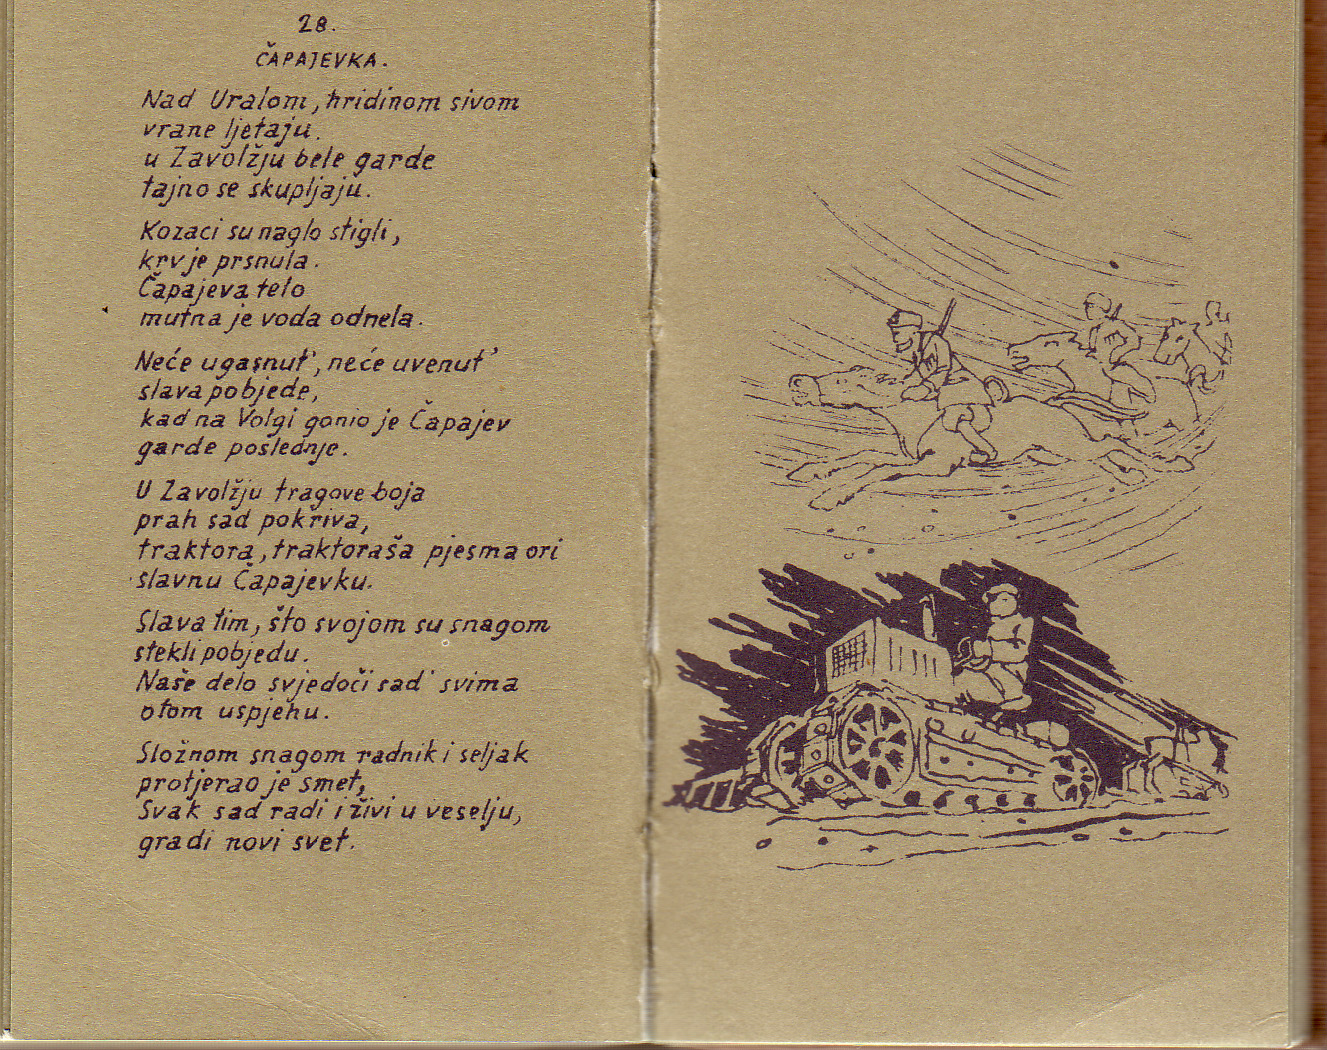 28.
ČAPAJEVKA.
Nad Uralom, hridinom sivom
vrane ljetaju.
u Zavolžju bele garde
tajno se skupljaju.
Kozaci su naglo stigli,
krv je prsnula.
Čapajeva telo
mutna je voda odnela.
Neće ugasnut', neće uvenut'
slava pobjede,
kad na Volgi gonio je Čapajev
garde poslednje.
U Zavolžju tragove boja
prah sad pokriva,
traktora, traktoraša pjesma ori
slavnu Čapajevku.
Slava tim, što svojom su snagom
stekli pobjedu.
Naše delo svjedoči sad' svima
otom uspjehu.
Složnom snagom radnik i seljak
protjerao je smet,
Svak sad radi i živi u veselju,
gradi novi svet.